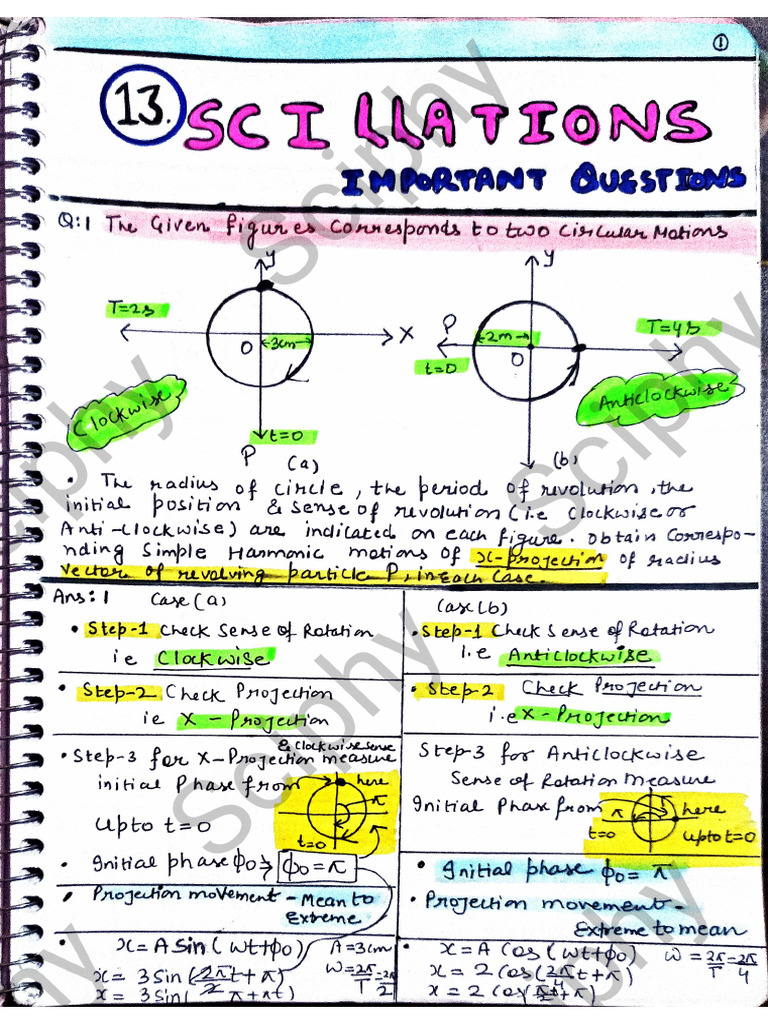 ①
13. SCILLATIONS
IMPORTANT QUESTIONS
Q:1 The Given figures Corresponds to two Circular Motions
y
T=2s
O
3cm
X
Clockwise
t=0
P
(a)
y
P
2m
T=4s
t=0
O
Anticlockwise
(b)
• The radius of circle, the period of revolution, the
initial position & sense of revolution (i.e Clockwise or
Anti-Clockwise) are indicated on each figure. obtain Correspo-
nding Simple Harmonic motions of x-projection of radius
vector of revolving particle P, in Each Case.
Ans: 1 Case (a)
• Step-1 Check Sense of Rotation
ie Clockwise
• Step-2 Check Projection
ie X - Projection
& Clockwise sense
• Step-3 for X-Projection measure
initial Phase from
here
π
Upto t=0
t=0
• Initial phase ϕ0 ⇒ ϕ0 = π
• Projection movement - Mean to
Extreme
• x=A Sin(wt+ϕ0) A=3cm
x= 3Sin(2π/2 t+π) W=2π/T=2π/2
x= 3Sin( π+πt)
Case (b)
• Step-1 Check Sense of Rotation
I.e Anticlockwise
• Step-2 Check Projection
i.e X-Projection
Step-3 for Anticlockwise
Sense of Rotation Measure
Initial Phase from
π
here
t=0
Upto t=0
• Initial phase ϕ0= π
• Projection movement -
Extreme to mean
• x=A Cos(wt+ϕ0) W=2π/T=2π/4
x= 2 Cos(2π/4 t+π)
x= 2 Cos(π/2 t+π)
Sciphy
Sciphy
Sciphy
Sciphy
Sciphy